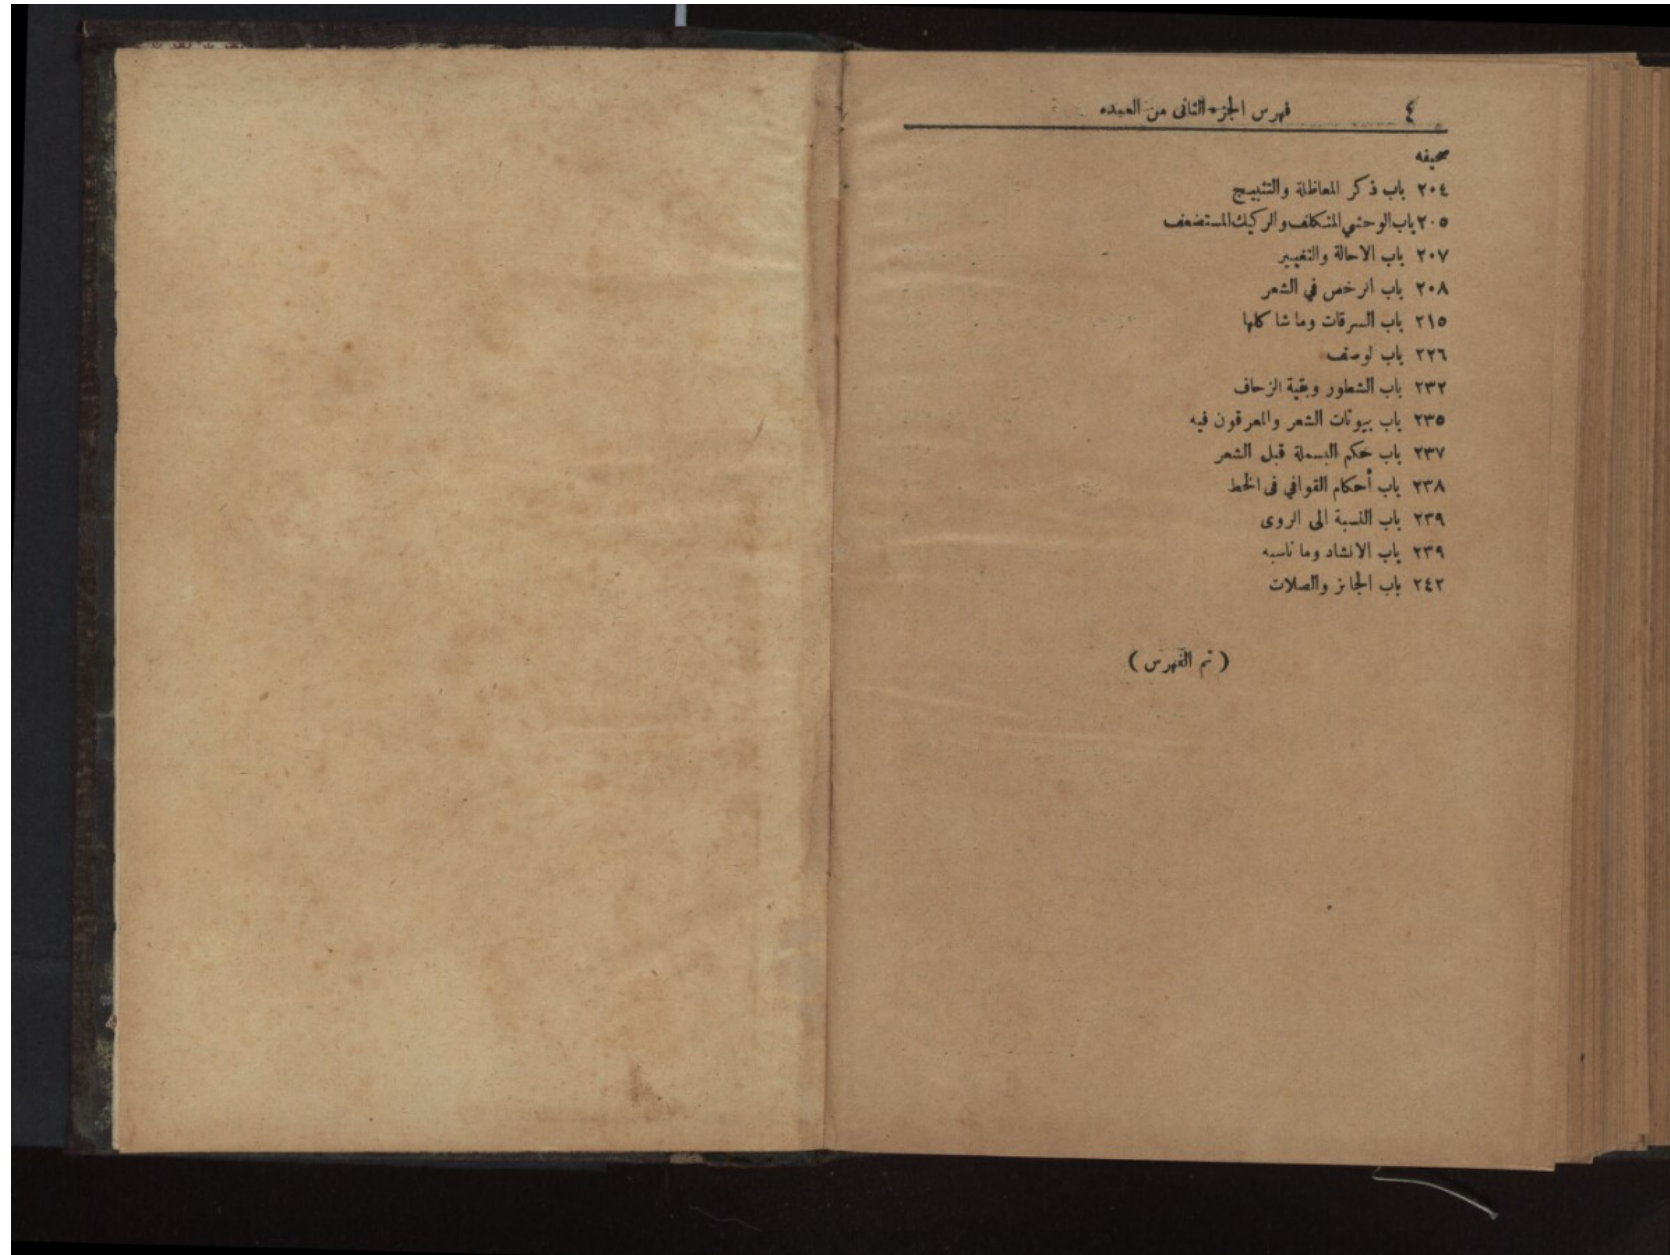 ٤ فهرس الجزء الثانى من العمده
صحيفه
٢٠٤ باب ذكر المعاظلة والتثبيج
٢٠٥ باب الوحشي المتكلف والركيك المستضعف
٢٠٧ باب الاحالة والتغيير
٢٠٨ باب الرخص في الشعر
٢١٥ باب السرقات وما شاكلها
٢٢٦ باب لوصف
٢٣٢ باب الشطور وبقية الزحاف
٢٣٥ باب بيوتات الشعر والمعرقون فيه
٢٣٧ باب حكم البسملة قبل الشعر
٢٣٨ باب أحكام القوافي فى الخط
٢٣٩ باب النسبة الى الروى
٢٣٩ باب الانشاد وما ناسبه
٢٤٢ باب الجائز والصلات
( تم الفهرس )